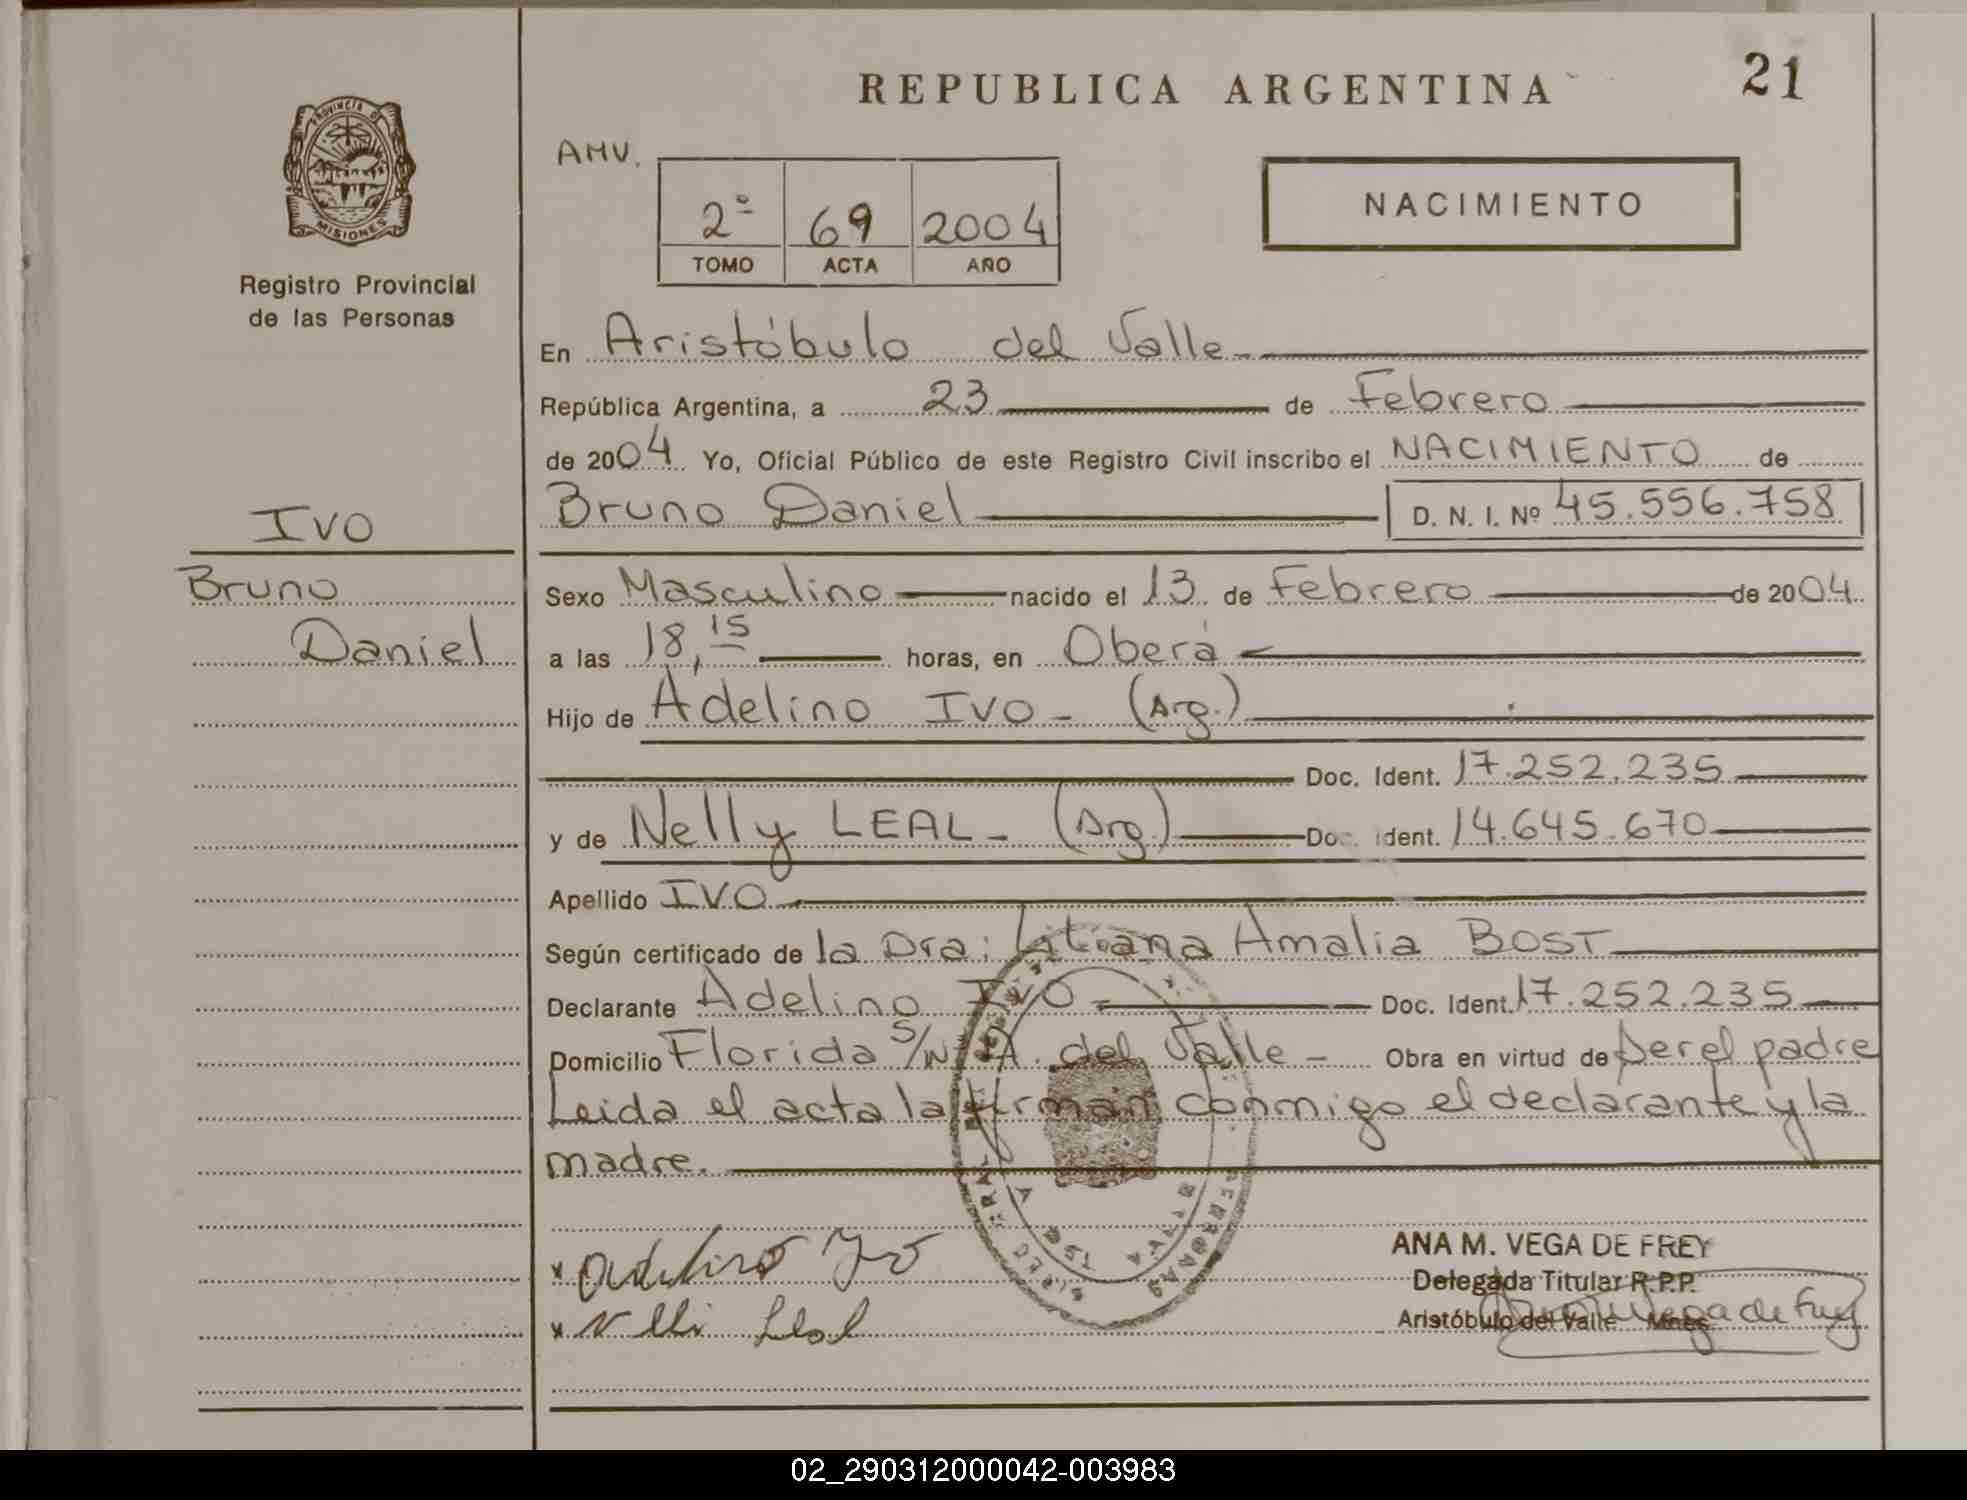 REPUBLICA ARGENTINA
21
PROVINCIA DE
MISIONES
Registro Provincial
de las Personas
AMV.
2º 69 2004
TOMO ACTA AÑO
NACIMIENTO
En Aristóbulo del Valle
República Argentina, a 23 de Febrero
de 2004 Yo, Oficial Público de este Registro Civil inscribo el NACIMIENTO de
Bruno Daniel D. N. I. Nº 45.556.758
IVO
Bruno
Daniel
Sexo Masculino nacido el 13 de Febrero de 2004
a las 18,15 horas, en Oberá
Hijo de Adelino IVO - (Arg.)
Doc. Ident. 17.252.235
y de Nelly LEAL - (Arg.) Doc. Ident. 14.645.670
Apellido IVO
Según certificado de la Dra: Amalia BOST
Declarante Adelino IVO Doc. Ident. 17.252.235
Domicilio Florida S/N A. del Valle - Obra en virtud de Ser el padre
Leida el acta la firman conmigo el declarante y la
madre.
x Adelino Ivo
x Nelli Leal
ANA M. VEGA DE FREY
Delegada Titular R.P.P.
Aristóbulo del Valle Mnes.
02_290312000042-003983